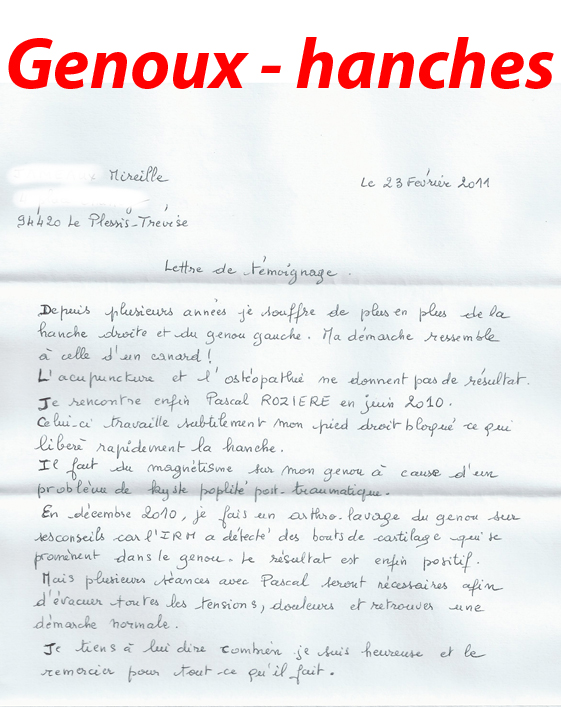 Genoux - hanches
Mireille
Le 23 Février 2011
94420 Le Plessis-Trévise
Lettre de témoignage.
Depuis plusieurs années je souffre de plus en plus de la
hanche droite et du genou gauche. Ma démarche ressemble
à celle d'un canard !
L'acupuncture et l'ostéopathie ne donnent pas de résultat.
Je rencontre enfin Pascal ROZIERE en juin 2010.
Celui-ci travaille subtilement mon pied droit bloqué ce qui
libère rapidement la hanche.
Il fait du magnétisme sur mon genou à cause d'un
problème de kyste poplité post-traumatique.
En décembre 2010, je fais un arthro-lavage du genou sur
ses conseils car l'IRM a détecté des bouts de cartilage qui se
promènent dans le genou. Le résultat est enfin positif.
Mais plusieurs séances avec Pascal seront nécessaires afin
d'évacuer toutes les tensions, douleurs et retrouver une
démarche normale.
Je tiens à lui dire combien je suis heureuse et le
remercier pour tout ce qu'il fait.